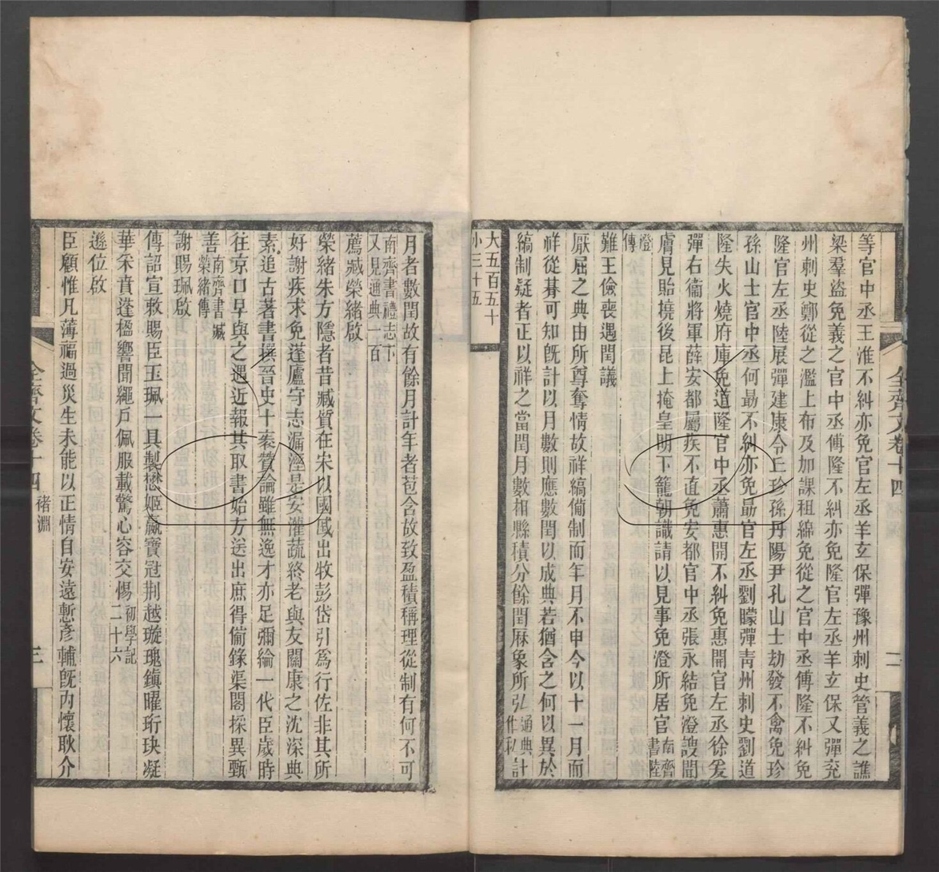 等官中丞王淮不糾亦免官左丞羊玄保彈豫州刺史管義之譙
梁羣盜免義之官中丞傅隆不糾亦免隆官左丞羊玄保又彈兖
州刺史鄭從之濫上布及加課租綿免從之官中丞傅隆不糾免
隆官左丞陸展彈建康令丘珍孫丹陽尹孔山士劫發不禽免珍
孫山士官中丞何勗不糾亦免勗官左丞劉矇彈青州刺史劉道
隆失火燒府庫免道隆官中丞蕭惠開不糾免惠開官左丞徐爰
彈右衞將軍薛安都屬疾不直免安都官中丞張永結免澄謏聞
膚見貽撓後昆上掩皇明下籠朝識請以見事免澄所居官 南齊書陸
澄傳
難王儉喪遇閏議
厭屈之典由所尊奪情故祥縞備制而年月不申今以十一月而
祥從朞可知旣計以月數則應數閏以成典若猶含之何以異於
縞制疑者正以祥之當閏月數相縣積分餘閏厤象所弘 通典作私 計
大五百五十
小三十五
全齊文卷十四
二
月者數閏故有餘月計年者苞含故致盈積稱理從制有何不可
南齊書禮志下
又見通典一百
薦臧榮緒啟
榮緒朱方隱者昔臧質在宋以國戚出牧彭岱引爲行佐非其所
好謝疾求免蓬廬守志漏溼是安灌蔬終老與友關康之沈深典
素追古著書撰晉史十袠贊論雖無逸才亦足彌綸一代臣歲時
往京口早與之遇近報其取書始方送出庶得偹錄渠閣採異甄
善 南齊書臧榮緒傳
謝賜珮啟
傳詔宣敕賜臣玉珮一具製懋姬嬴寳冠荆越璇瑰鎮曜珩玦凝
華釆賁蓬楹響聞繩戶佩服載驚心容交惕 初學記二十六
遜位啟
臣顧惟凡薄福過災生未能以正情自安遠慙彥輔旣内懷耿介
全齊文卷十四 褚淵
三